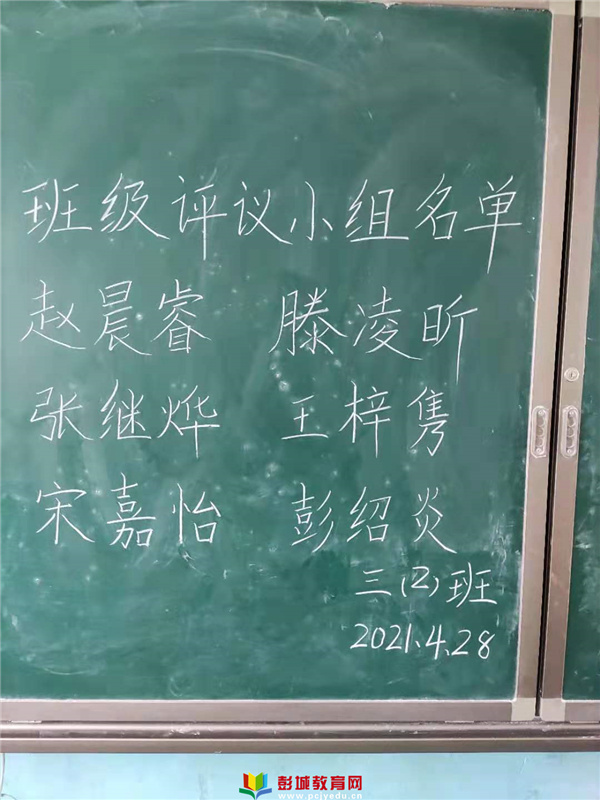 班级评议小组名单
赵晨睿 滕凌昕
张继烨 王梓隽
宋嘉怡 彭绍炎
三(2)班
2021.4.28
彭城教育网
www.pcjyedu.cn